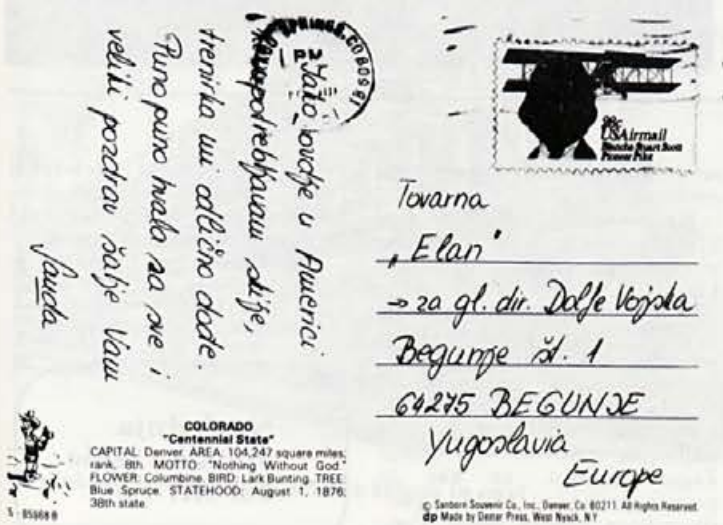 SPRINGS, CO 809
PM
Iako ovdje u Americi
ne upotrebljavam skije,
trenirka mi odlično dođe.
Puno puno hvala za sve i
veliki pozdrav šalje Vam
Sanda
USAirmail
Blanche Stuart Scott
Pioneer Pilot
Tovarna
„Elan"
→ za gl. dir. Dolfe Vojska
Begunje št. 1
64275 BEGUNJE
Yugoslavia
Europe
COLORADO
"Centennial State"
CAPITAL: Denver. AREA: 104,247 square miles,
rank, 8th. MOTTO: "Nothing Without God."
FLOWER: Columbine. BIRD: Lark Bunting. TREE:
Blue Spruce. STATEHOOD: August 1, 1876,
38th state.
© Sanborn Souvenir Co., Inc., Denver, Co. 80211. All Rights Reserved.
dp Made by Dexter Press, West Nyack, N.Y.